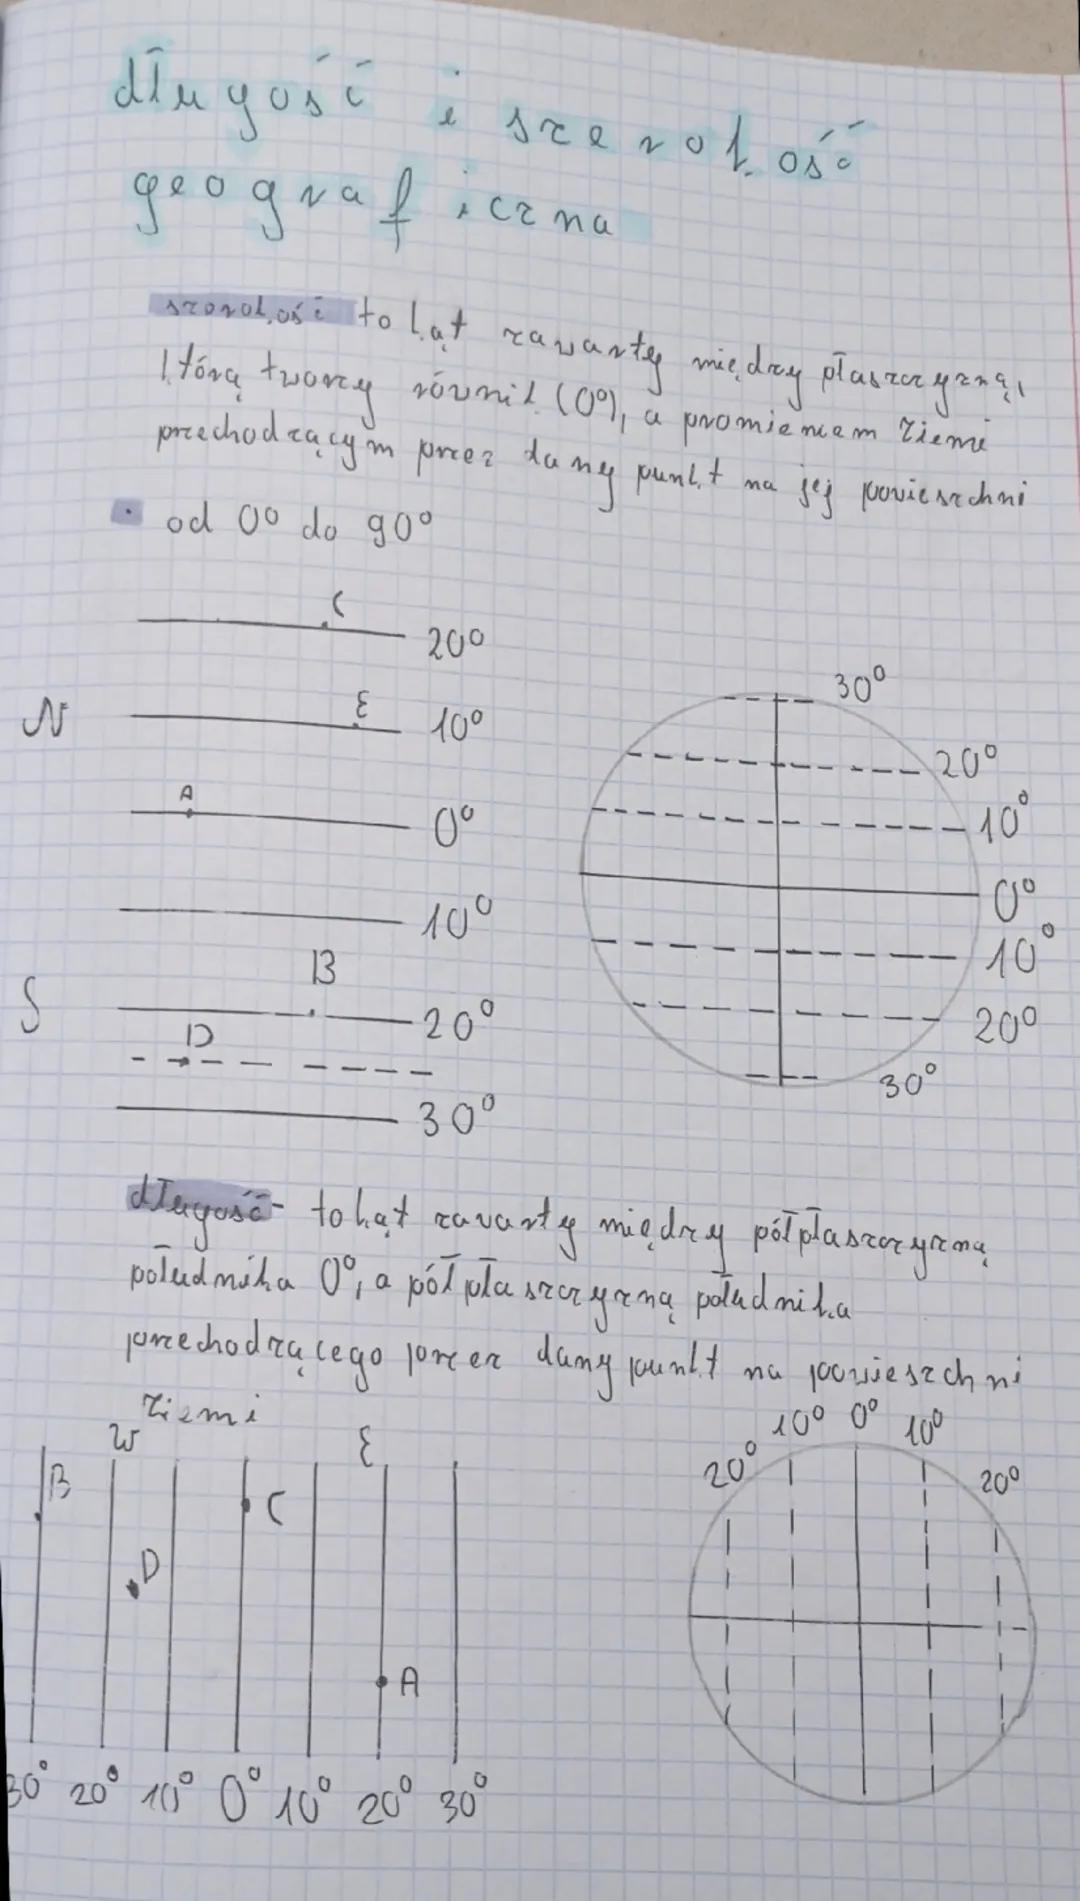 długość i szerokość
geograficzna
szerokość to kąt zawarty między płaszczyzną,
którą tworzy równik (0°), a promieniem Ziemi
przechodzącym przez dany punkt na jej powieszchni
• od 0° do 90°
C
20°
30°
N
E
10°
20°
A
0°
10°
0°
10°
10°
B
S
20°
20°
D
30°
30°
długość - to kąt zawarty między półpłaszczyzną
południka 0°, a półpłaszczyzną południka
przechodzącego przez dany punkt na powieszchni
Ziemi
W
E
10° 0° 10°
B
20°
20°
C
D
A
30° 20° 10° 0° 10° 20° 30°